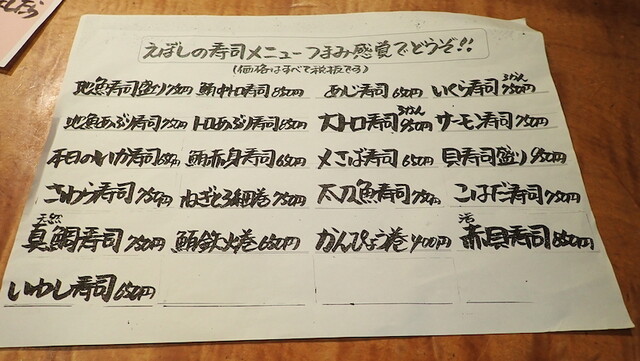 えぼしの寿司メニューつまみ感覚でどうぞ!!
(価格はすべて税抜です)
地魚寿司盛り750円 鮪中トロ寿司850円 あじ寿司650円 いくら寿司750円
地魚あぶり寿司750円 トロあぶり寿司850円 大トロ寿司950円 サーモン寿司750円
本日のいか寿司650円 鮪赤身寿司650円 〆さば寿司650円 貝寿司盛り950円
さわら寿司750円 ねぎとろ細巻750円 太刀魚寿司750円 こはだ寿司750円
天然
真鯛寿司750円 鮪鉄火巻650円 かんぴょう巻400円 活 赤貝寿司850円
いわし寿司650円